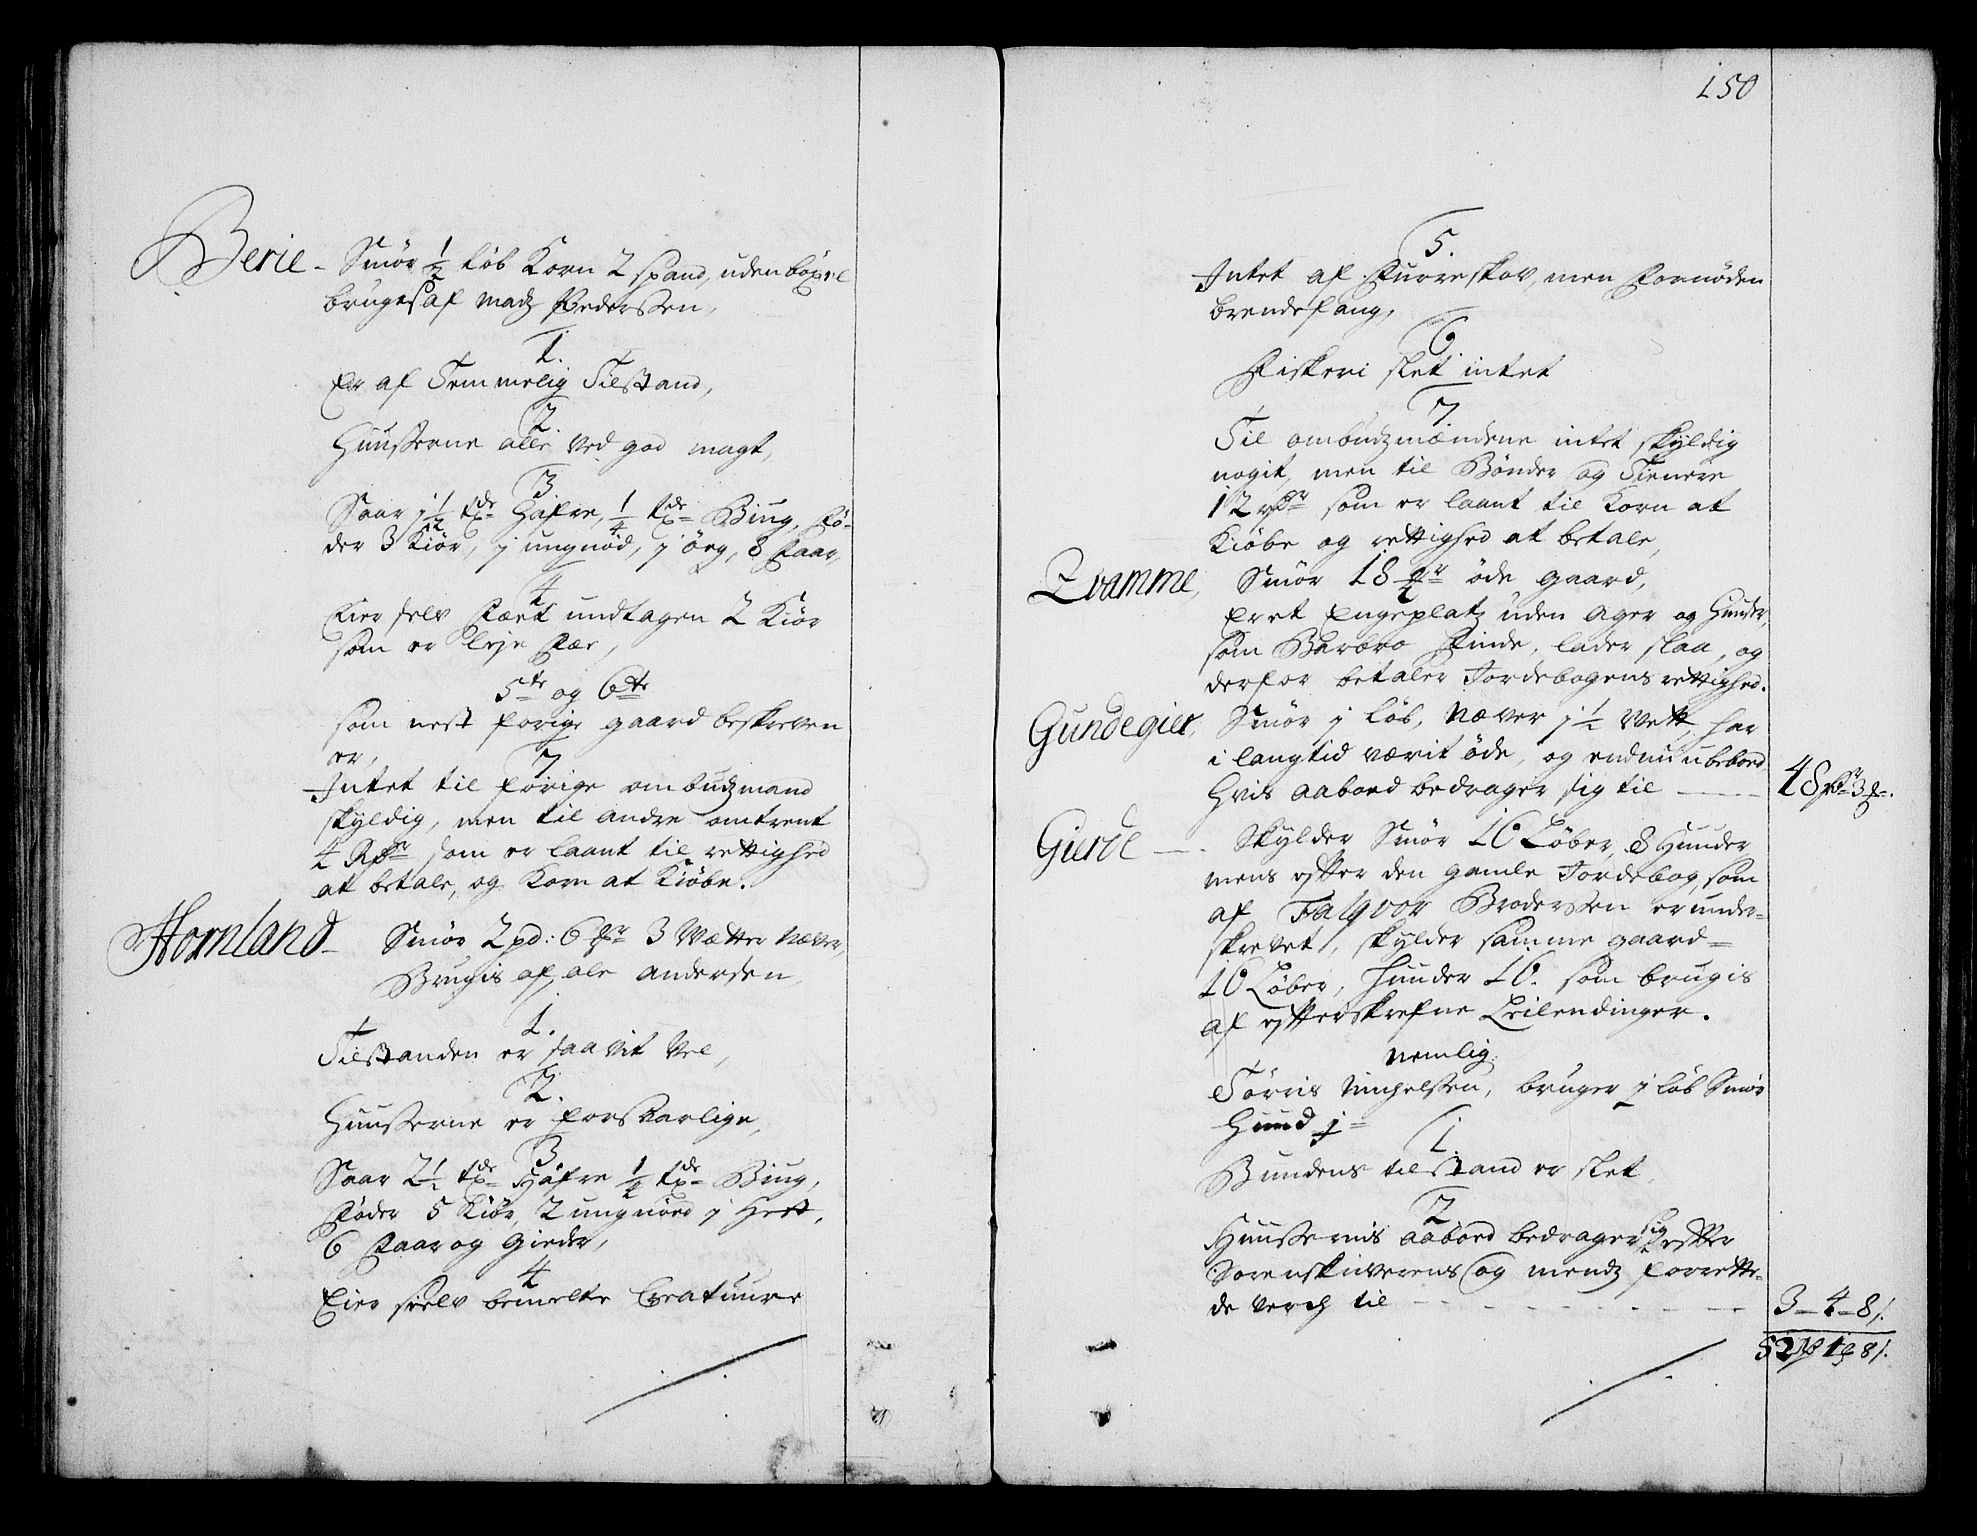 Berie - Smör ½ löb Korn 2 spand, uden böxel
bruges af Madz Pederssen,
1.
Er af Temmelig Tilstand,
2.
Huusserne alle ved god magt,
3
Saar j½ tde Hafre, ¼ tde Biug, fö-
der 3 Kiör, j ungnöd, j ög, 8 Faar,
4
Eier selv Fæet undtagen 2 Kiör
som er leje Fæe,
5te og 6te
som nest forige gaard beskreven
er,
7
Intet til forige ombudzmand
skyldig, men til andre omtrent
4 Rdr som er laant til rettighed
at betale, og Korn at Kiöbe.
Hornland - Smör 2 pd: 6 mr 3 Vetter Næver,
Brugis af ole andersen,
1.
Tilstanden er saavit vel,
2.
Huusserne er forsvarlige,
3.
Saar 2½ tde Hafre ¼ tde Biug,
föder 5 Kiör, 2 ungnöed j Hest,
6 Faar og Gieder,
4
Eier sielv bemelte Creatuure
150
5.
Intet af Furreskov, men fornöden
brendefang,
6
Fiskeri slet intet
7
Til ombudzmændene intet skyldig
nogit, men til Bönder og Tienere
12 rdr som er laant til Korn at
Kiöbe og rettighed at betale,
Qvamme, Smör 18 mr öde gaard,
Er et Engeplatz uden Ager og Huuser,
som Barbro Finde, lader slaa, og
derfor betaler Jordebogens rettighed.
Gundegier, Smör j löb, Næver j½ Vett, har
i langtid værit öde, og endnu ubeboed
Hvis aaboed bedrager sig til — 48 rdr 3 mk.
Gierde — Skylder Smör 10 Löber, 8 Huuder
mens efter den gamle Jordebog, som
af Falqvor Broderssen er under-
skrevet, skylder samme gaard=
10 Löber, Huuder 10. som brugis
af efterskrefne Leilendinger.
Nemlig.
Törris Michelssen, bruger j löb Smör
Huud j=
1.
Bundens tilstand er slet,
2
Huussernis aaboed bedrager sig efter
Sorenskriverens og mendz forrette-
de verch til — 3 - 4 - 8 /.
52 rd 1 mk 8 /.